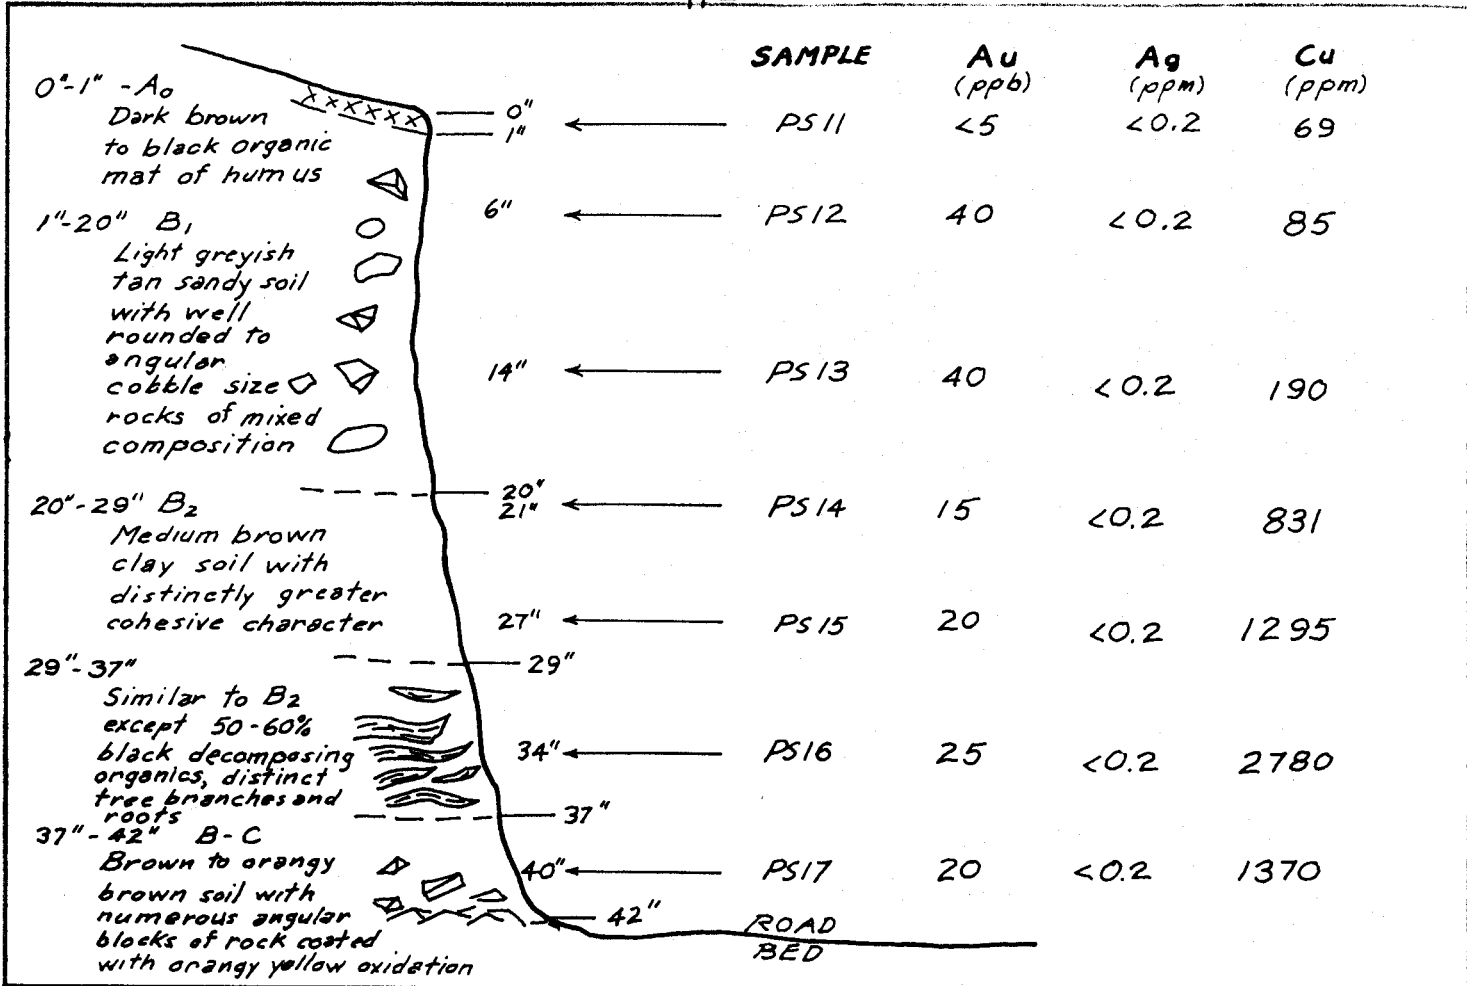 SAMPLE Au Ag Cu
(ppb) (ppm) (ppm)
0"-1" - A₀
Dark brown
to black organic
mat of humus
1"-20" B₁
Light greyish
tan sandy soil
with well
rounded to
angular
cobble size
rocks of mixed
composition
20"-29" B₂
Medium brown
clay soil with
distinctly greater
cohesive character
29"-37"
Similar to B₂
except 50-60%
black decomposing
organics, distinct
tree branches and
roots
37"-42" B-C
Brown to orangy
brown soil with
numerous angular
blocks of rock coated
with orangy yellow oxidation
0"
1" PS11 <5 <0.2 69
6" PS12 40 <0.2 85
14" PS13 40 <0.2 190
20"
21" PS14 15 <0.2 831
27" PS15 20 <0.2 1295
29"
34" PS16 25 <0.2 2780
37"
40" PS17 20 <0.2 1370
42"
ROAD
BED